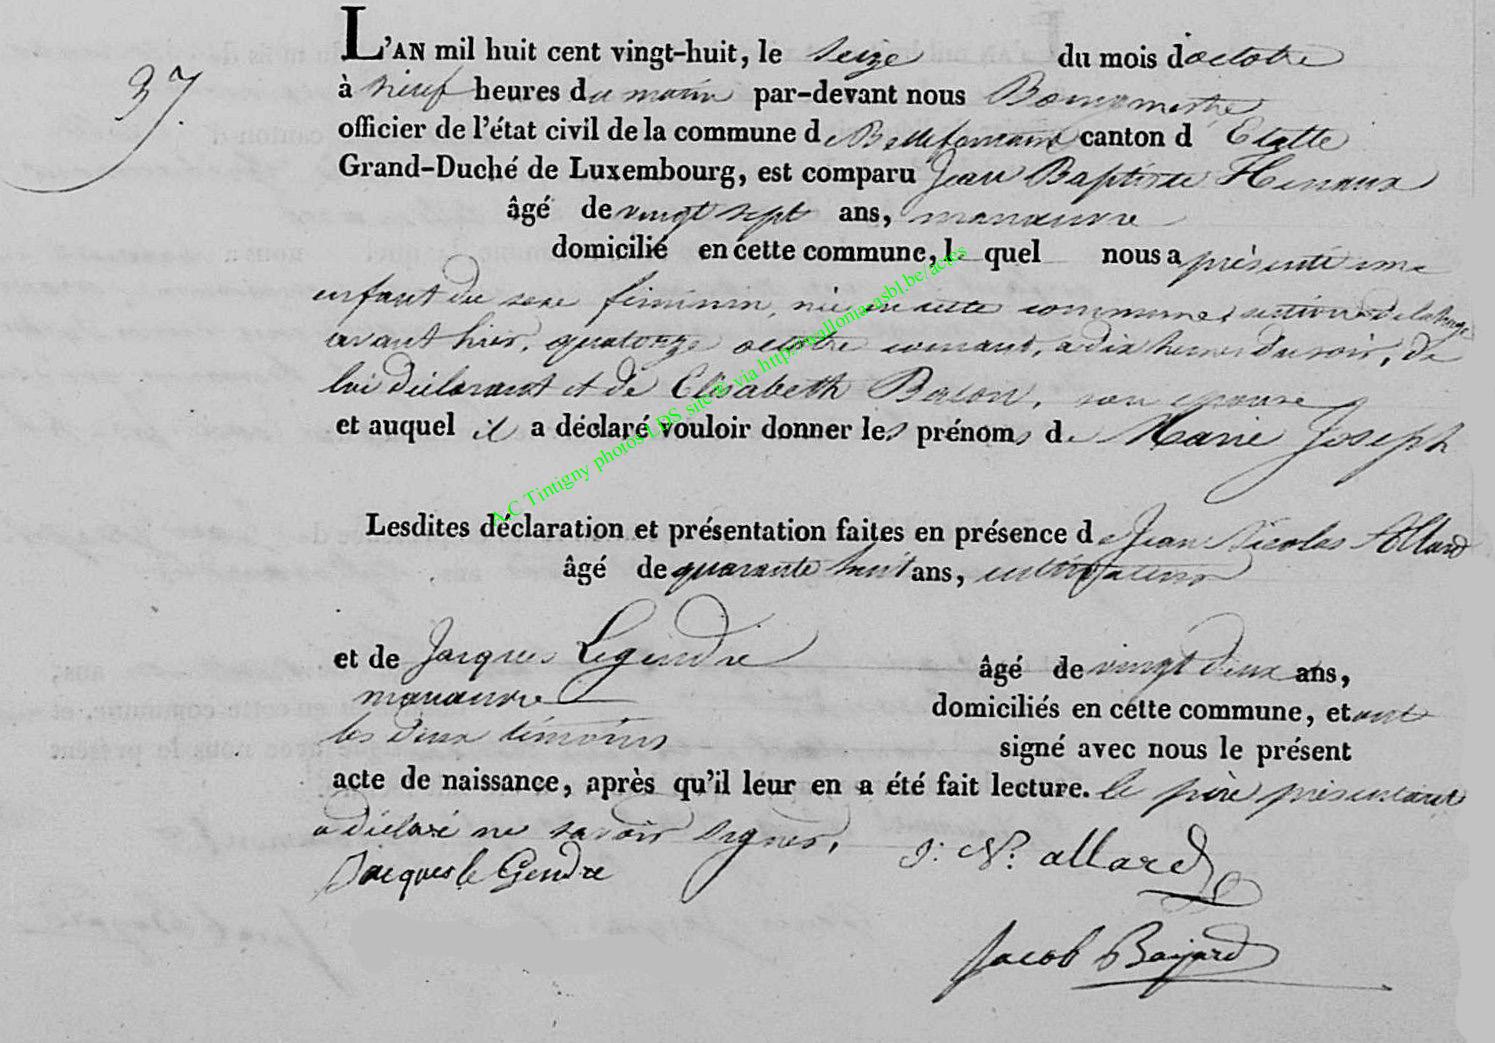 37.
L'AN mil huit cent vingt-huit, le seize du mois d'octobre
à neuf heures du matin par-devant nous Bourgmestre
officier de l'état civil de la commune de Bellefontaine canton d'Etalle
Grand-Duché de Luxembourg, est comparu Jean Baptiste Henaux
âgé de vingt sept ans, manœuvre
domicilié en cette commune, le quel nous a présenté une
enfant du sexe féminin, née en cette commune, section de
avant hier, quatorze octobre courant, à dix heures du soir, de
lui déclarant et de Elisabeth Bacon, son épouse
et auquel il a déclaré vouloir donner les prénoms de Marie Joseph
Lesdites déclaration et présentation faites en présence de Jean Nicolas Allard
âgé de quarante huit ans, cultivateur
et de Jacques Legendre âgé de vingt deux ans,
manœuvre domiciliés en cette commune, et ont
les deux témoins signé avec nous le présent
acte de naissance, après qu'il leur en a été fait lecture. le père présentant
a déclaré ne savoir signer,
J. N. allard
Jacques le Gendre
Jacob Bayard
A.C Tintigny photos LDS site @ via http://wallonia-asbl.be/actes